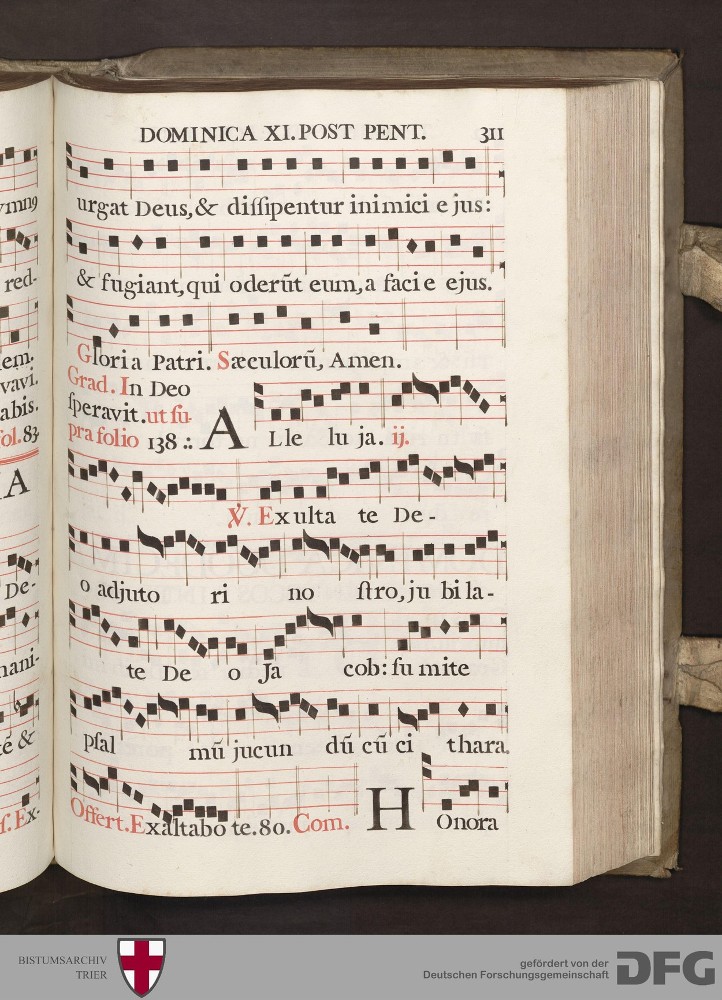 DOMINICA XI. POST PENT. 311
urgat Deus, & diſſipentur inimici ejus:
& fugiant, qui oderūt eum, a facie ejus.
Gloria Patri. Sæculorū, Amen.
Grad. In Deo
ſperavit. ut ſu-
pra folio 138 .:
A Lle lu ja. ij.
℣. Exulta te De-
o adjuto ri no ſtro, ju bi la-
te De o Ja cob: ſu mite
pſal mū jucun dū cū ci thara.
Offert. Exaltabo te. 80. Com. H Onora
ymnꝯ
red-
em.
vavi.
abis.
fol. 83
IA
De-
mani-
té &
f. Ex-
BISTUMSARCHIV
TRIER
gefördert von der
Deutschen Forschungsgemeinschaft
DFG